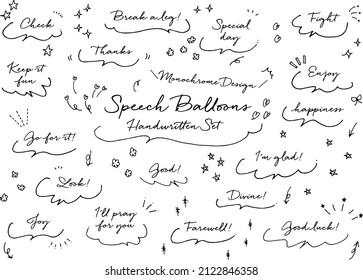 Check
Break a leg!
Special
day
Fight
Thanks
Keep it
fun
Monochrome Design
Enjoy
Speech Balloons
Handwritten Set
happiness
Go for it!
Good!
I'm glad!
Look!
Divine!
Joy
I'll pray
for you
Farewell!
Good luck!
shutterstock.com · 2122846358